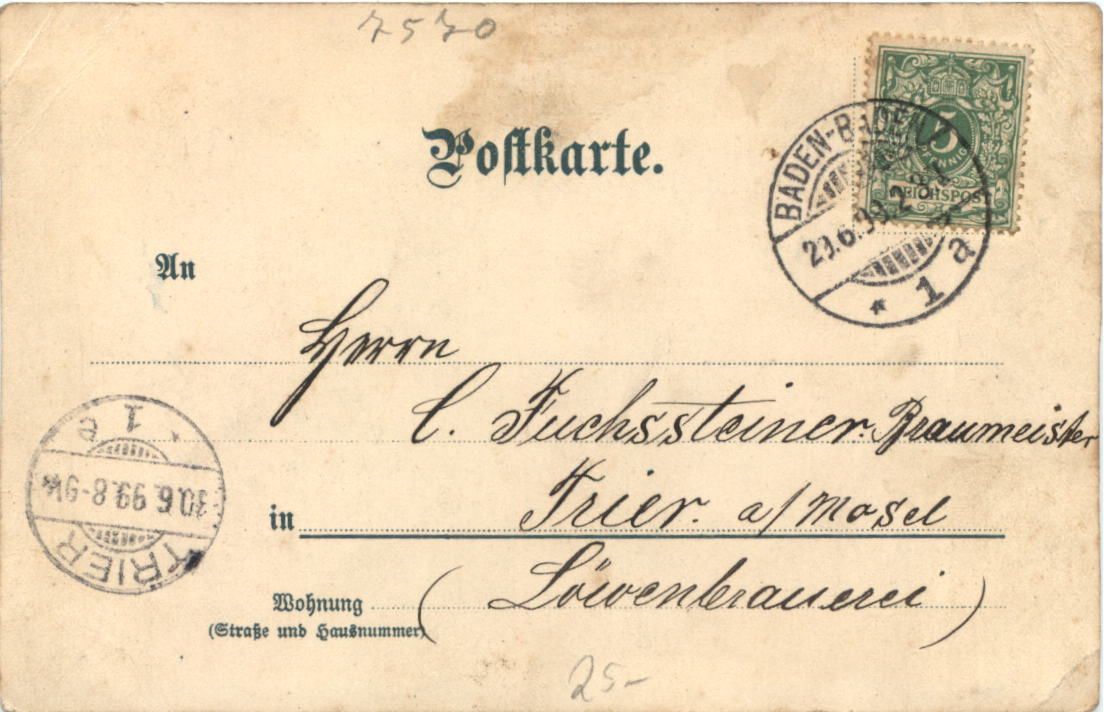 7570
Postkarte.
5
PFENNIG
REICHSPOST
BADEN-BADEN
29.6.99.2
* 1 a
An
Herrn
C. Fuchssteiner. Braumeister
in Trier. a/Mosel
Wohnung (Löwenbrauerei)
(Straße und Hausnummer)
TRIER
30.6.99.8-9
* 1 e
25-